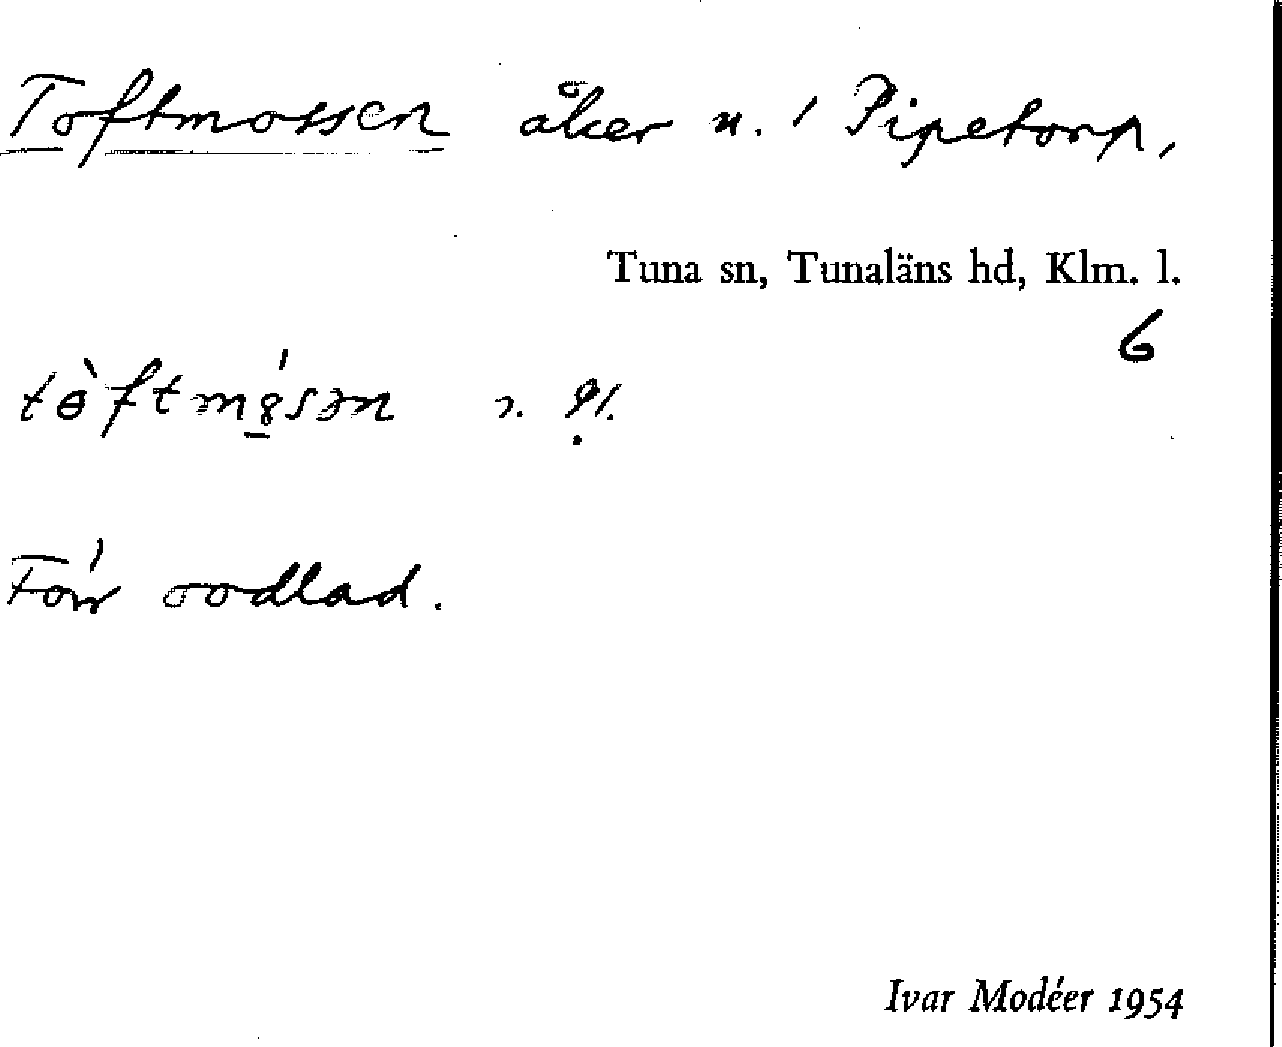 Toftmossen åker n. i Pipetorp,
Tuna sn, Tunaläns hd, Klm. l.
6
tɵ̀ftmo̱̍sən
Förr oodlad.
Ivar Modéer 1954